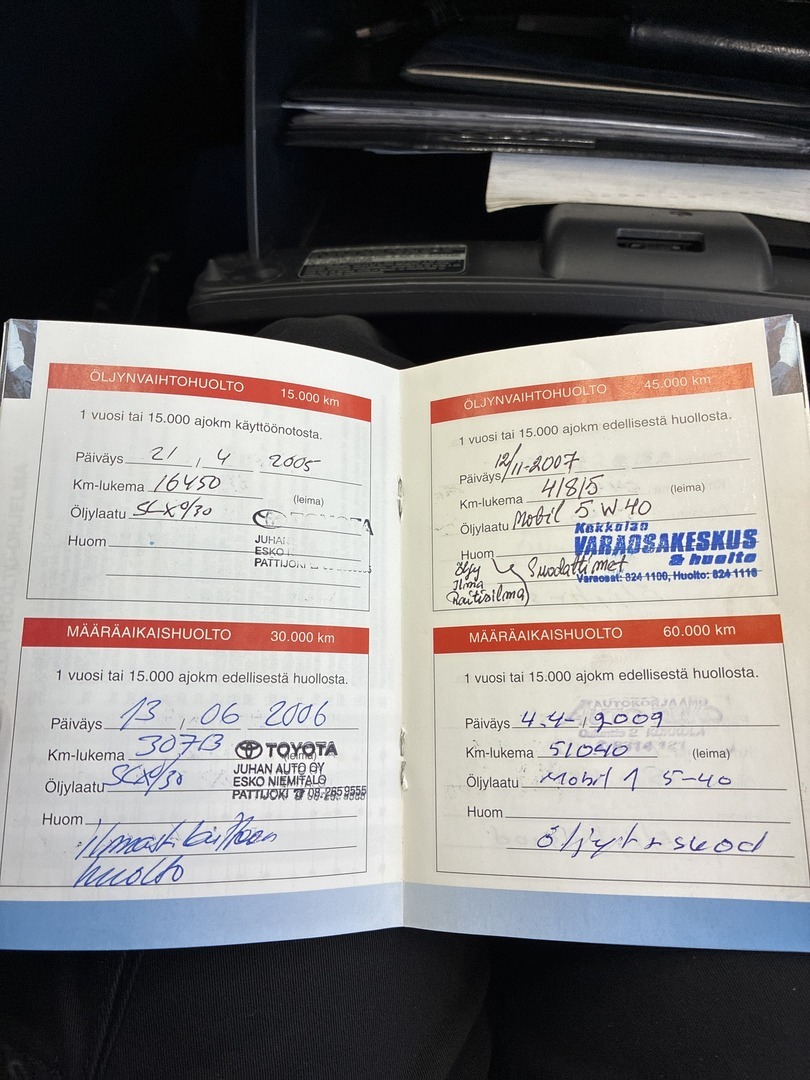 ÖLJYNVAIHTOHUOLTO 15.000 km
1 vuosi tai 15.000 ajokm käyttöönotosta.
Päiväys 21 . 4 2005
Km-lukema 16450
(leima)
Öljylaatu 5W30
TOYOTA
JUHAN
Huom ESKO
PATTIJOKI
MÄÄRÄAIKAISHUOLTO 30.000 km
1 vuosi tai 15.000 ajokm edellisestä huollosta.
Päiväys 13 . 06 2006
Km-lukema 30713
TOYOTA
JUHAN AUTO OY
Öljylaatu
ESKO NIEMITALO
PATTIJOKI ☎ 08-265 9555
Huom
ilmastoinnin
huolto
ÖLJYNVAIHTOHUOLTO 45.000 km
1 vuosi tai 15.000 ajokm edellisestä huollosta.
Päiväys 12/11-2007
Km-lukema 41815 (leima)
Öljylaatu Mobil 5 W 40
Kokkolan
VARAOSAKESKUS
& huolto
Varaosat: 824 1100, Huolto: 824 1116
Huom
Öljy
Ilma Suodattimet
Raitisilma
MÄÄRÄAIKAISHUOLTO 60.000 km
1 vuosi tai 15.000 ajokm edellisestä huollosta.
Päiväys 4.4- 2009
Km-lukema 51040 (leima)
Öljylaatu Mobil 1 5-40
Huom
öljyt + suod